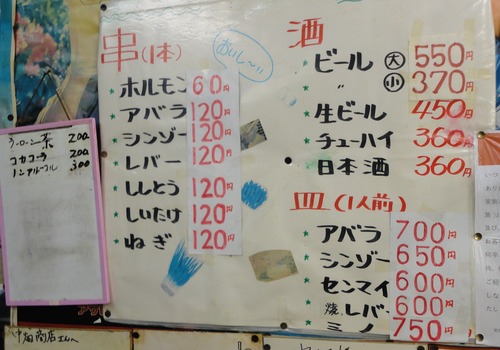 串(1本)
おいし〜!!
ホルモン 60円
アバラ 120円
シンゾー 120円
レバー 120円
ししとう 120円
しいたけ 120円
ねぎ 120円
酒
ビール 大 550円
〃 小 370円
生ビール 450円
チューハイ 360円
日本酒 360円
皿(1人前)
アバラ 700円
シンゾー 650円
センマイ 600円
焼レバー 600円
ミノ 750円
ウーロン茶 200
コカコーラ 200
ノンアルコール 300
中畑商店さんへ